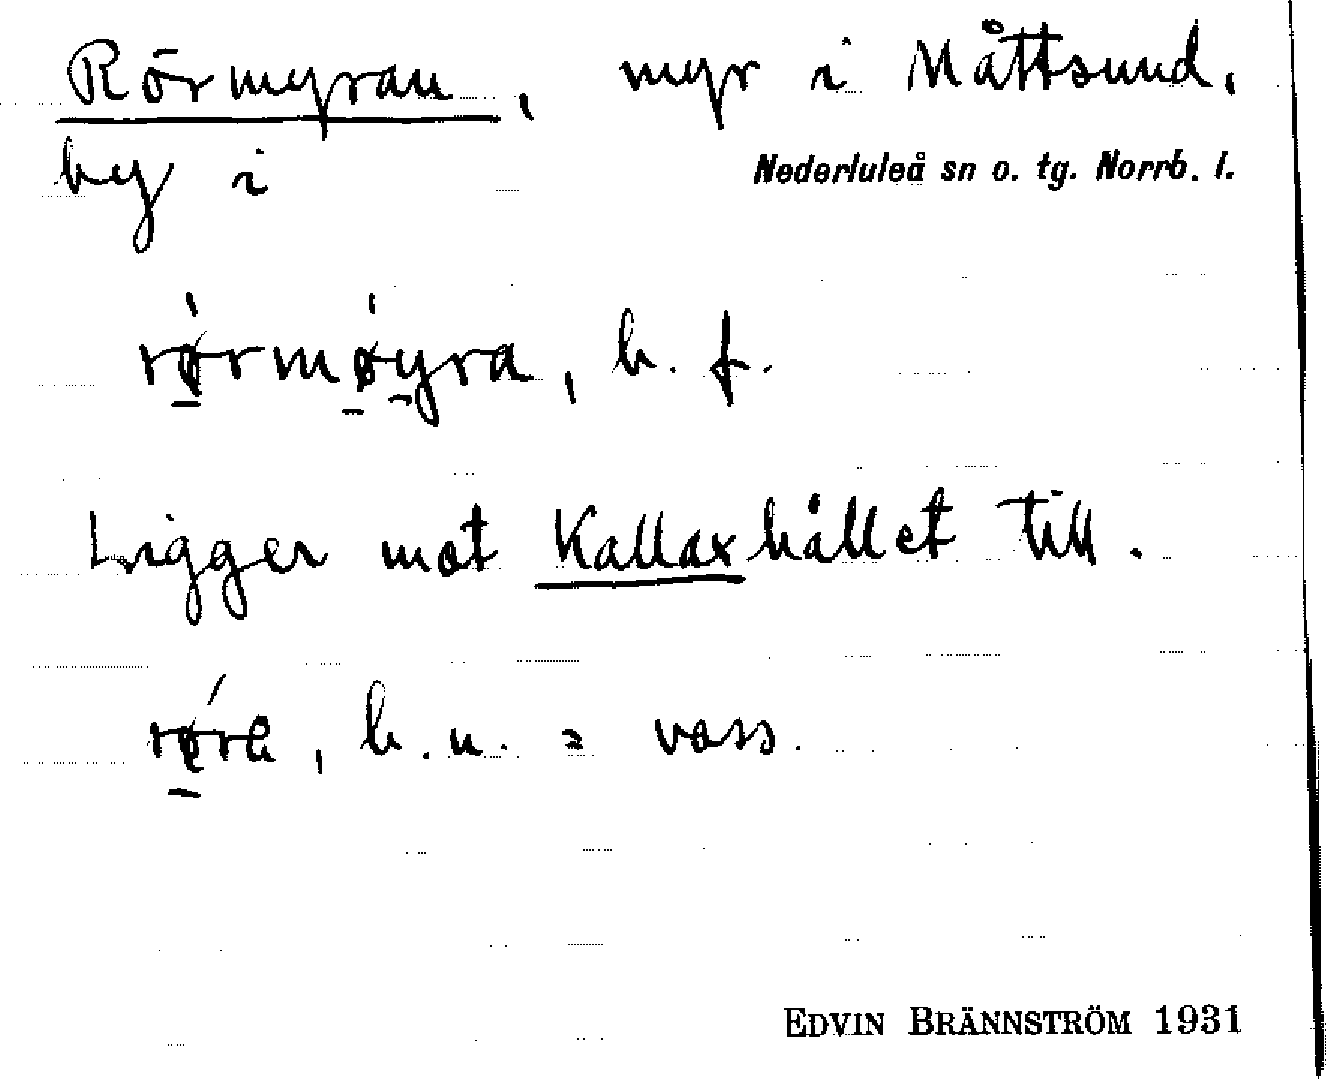 Rörmyran, myr i Måttsund,
by i Nederluleå sn o. tg. Norrb. l.
rǿ̱rmǿ̱y̱ra, b. f.
Ligger mot Kallaxhållet till.
rǿ̱re, b. n. = vass.
EDVIN BRÄNNSTRÖM 1931